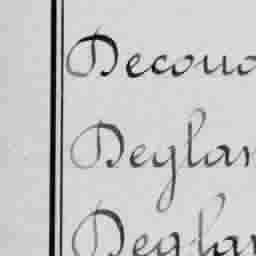 Decouo
Deglar
Deglar